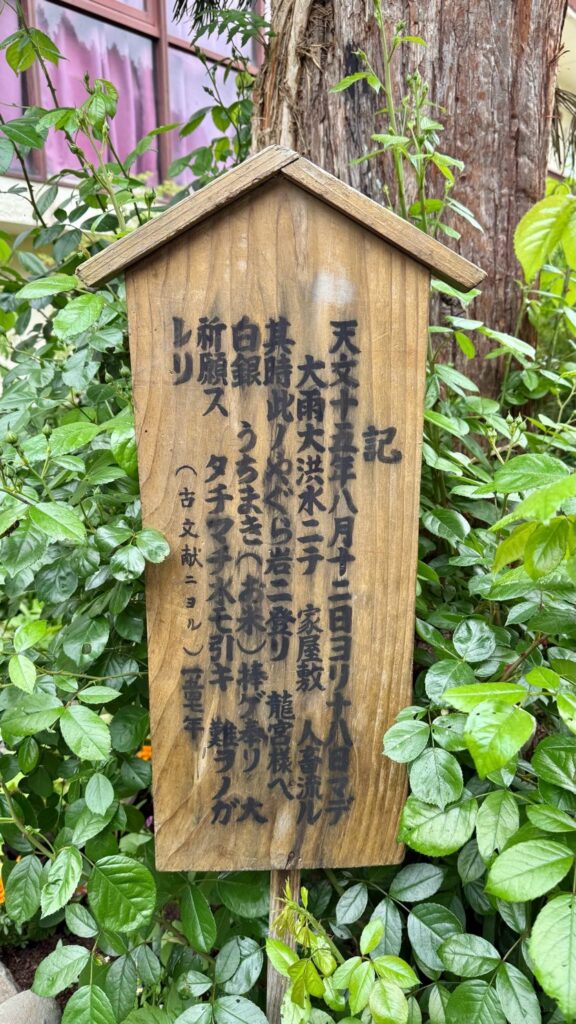 記
天文十五年八月十二日ヨリ十八日マデ
大雨大洪水ニテ 家屋敷 人畜流ル
其時此ノやぐら岩ニ登リ 龍宮様へ
白銀 うちまき(お米)捧ゲ奉リ 大
祈願ス タチマチ水モ引キ 難ヲノガ
レリ
(古文献ニヨル)一五四七年